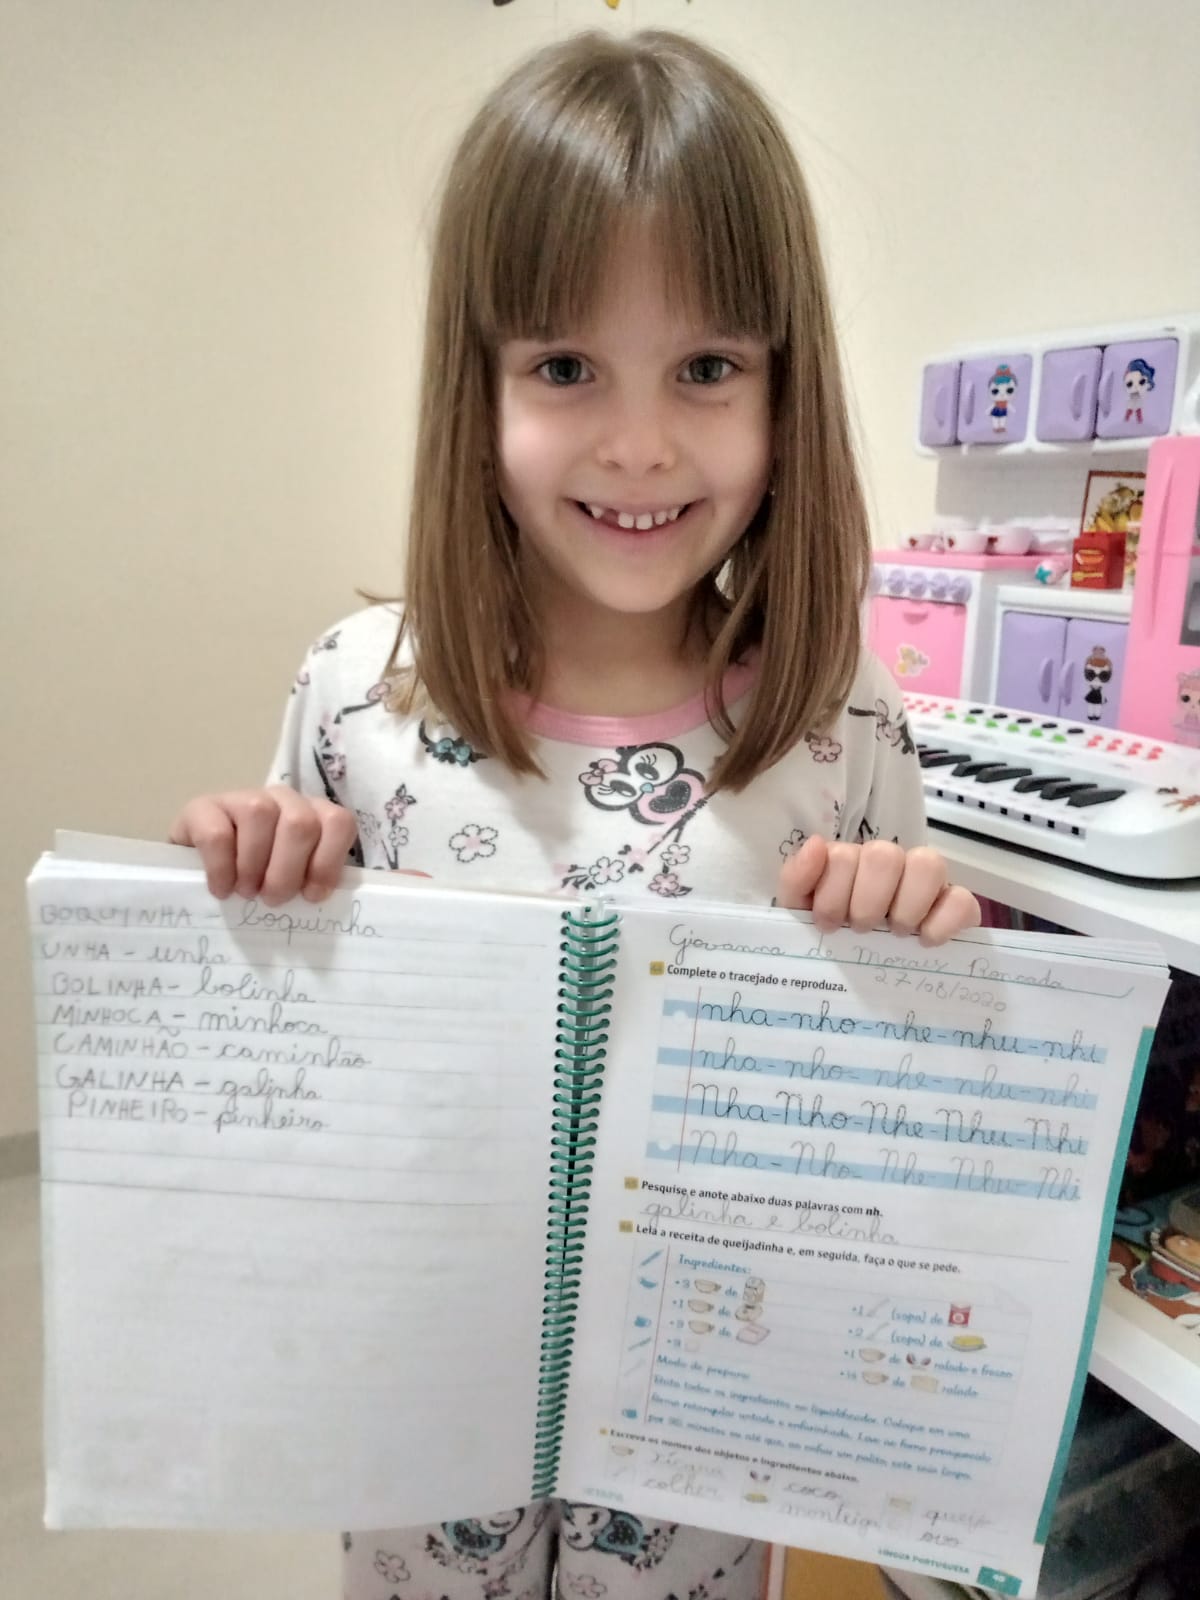 BOQUINHA - boquinha
UNHA - unha
BOLINHA - bolinha
MINHOCA - minhoca
CAMINHÃO - caminhão
GALINHA - galinha
PINHEIRO - pinheiro
Giovanna de Moraes Roncada
27/08/2020
Complete o tracejado e reproduza.
nha-nho-nhe-nhu-nhi
nha-nho-nhe-nhu-nhi
Nha-Nho-Nhe-Nhu-Nhi
Nha-Nho-Nhe-Nhu-Nhi
Pesquise e anote abaixo duas palavras com nh.
galinha e bolinha
Leia a receita de queijadinha e, em seguida, faça o que se pede.
Ingredientes:
•3 de
•1 de
•3 de
•3
•1 (sopa) de
•2 (sopa) de
•1 de ralado e fresco
de ralado
Modo de preparo:
Bata todos os ingredientes no liquidificador. Coloque em uma
forma retangular untada e enfarinhada. Leve ao forno preaquecido
por 30 minutos ou até que, ao enfiar um palito, este saia limpo.
Escreva os nomes dos objetos e ingredientes abaixo.
xícara coco
colher manteiga ovo
LÍNGUA PORTUGUESA